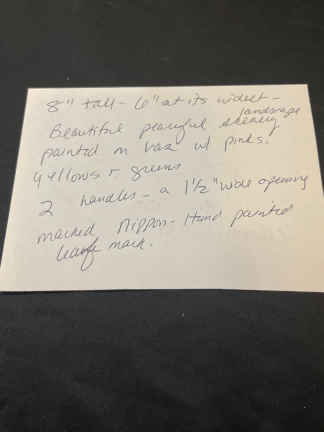 8" tall - 6" at its widest -
landscape
Beautiful peaceful scenery
painted on vase w/ pinks,
yellows & greens
2 handles - a 1½" wide opening
marked Nippon - Hand painted
leafe mark.